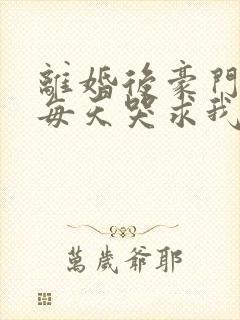 離婚後豪門
每天哭求我
萬歲爺耶